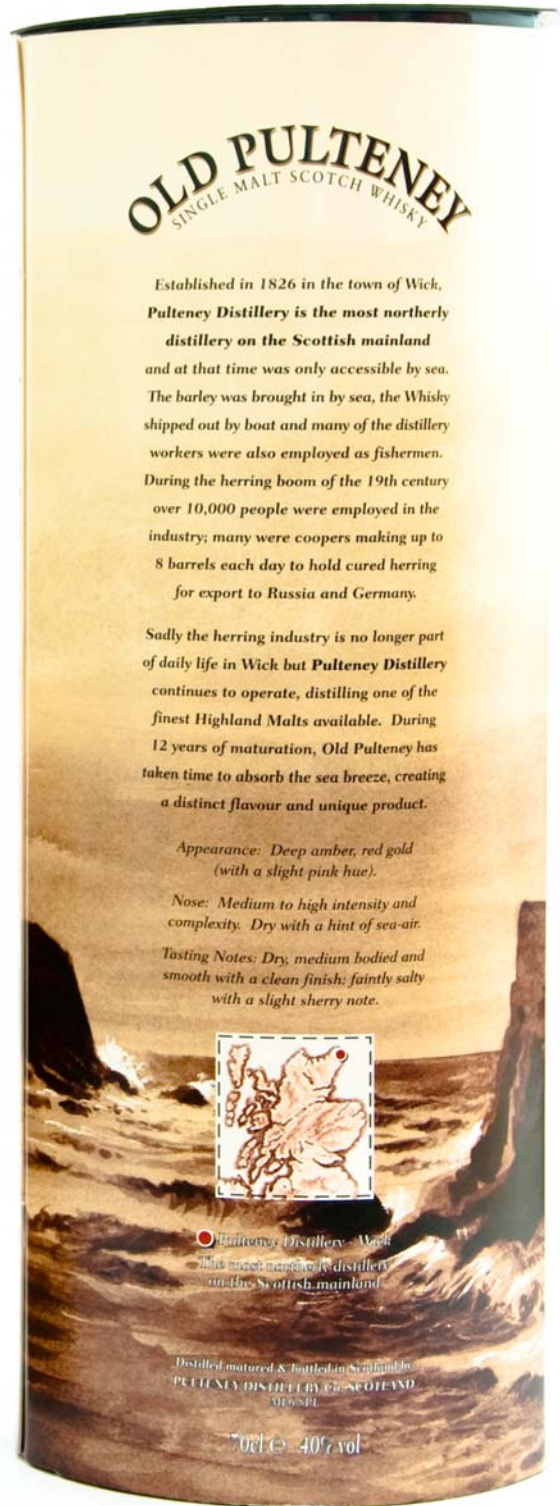 OLD PULTENEY
SINGLE MALT SCOTCH WHISKY
Established in 1826 in the town of Wick,
Pulteney Distillery is the most northerly
distillery on the Scottish mainland
and at that time was only accessible by sea.
The barley was brought in by sea, the Whisky
shipped out by boat and many of the distillery
workers were also employed as fishermen.
During the herring boom of the 19th century
over 10,000 people were employed in the
industry; many were coopers making up to
8 barrels each day to hold cured herring
for export to Russia and Germany.
Sadly the herring industry is no longer part
of daily life in Wick but Pulteney Distillery
continues to operate, distilling one of the
finest Highland Malts available. During
12 years of maturation, Old Pulteney has
taken time to absorb the sea breeze, creating
a distinct flavour and unique product.
Appearance: Deep amber, red gold
(with a slight pink hue).
Nose: Medium to high intensity and
complexity. Dry with a hint of sea-air.
Tasting Notes: Dry, medium bodied and
smooth with a clean finish: faintly salty
with a slight sherry note.
Pulteney Distillery - Wick
The most northerly distillery
on the Scottish mainland
Distilled matured & bottled in Scotland by
PULTENEY DISTILLERY Co. SCOTLAND
70cl ℮ 40% vol